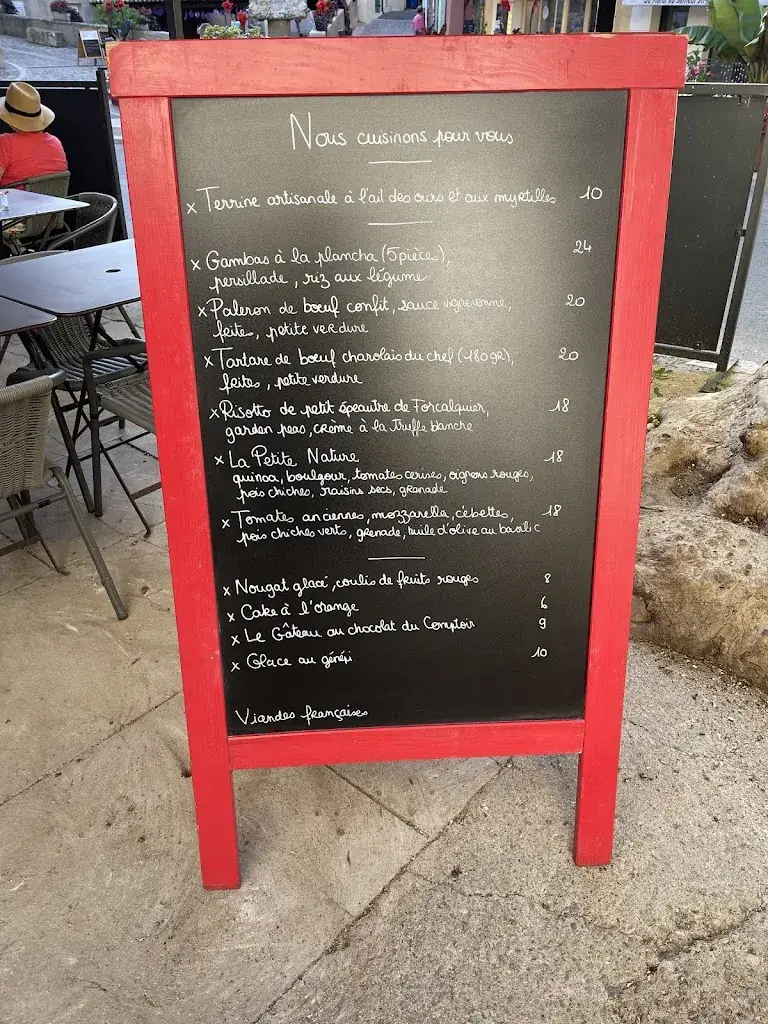 Nous cuisinons pour vous
x Terrine artisanale à l'ail des ours et aux myrtilles 10
x Gambas à la plancha (5 pièce), 24
persillade, riz aux légumes
x Paleron de bœuf confit, sauce vigneronne, 20
frites, petite verdure
x Tartare de bœuf charolais du chef (~180gr), 20
frites, petite verdure
x Risotto de petit épeautre de Forcalquier, 18
garden peas, crème à la truffe blanche
x La Petite Nature 18
quinoa, boulgour, tomates cerises, oignons rouges,
pois chiches, raisins secs, grenade
x Tomates anciennes, mozzarella, cébettes, 18
pois chiches verts, grenade, huile d'olive au basilic
x Nougat glacé, coulis de fruits rouges 8
x Cake à l'orange 6
x Le Gâteau au chocolat du Comptoir 9
x Glace au génépi 10
Viandes françaises